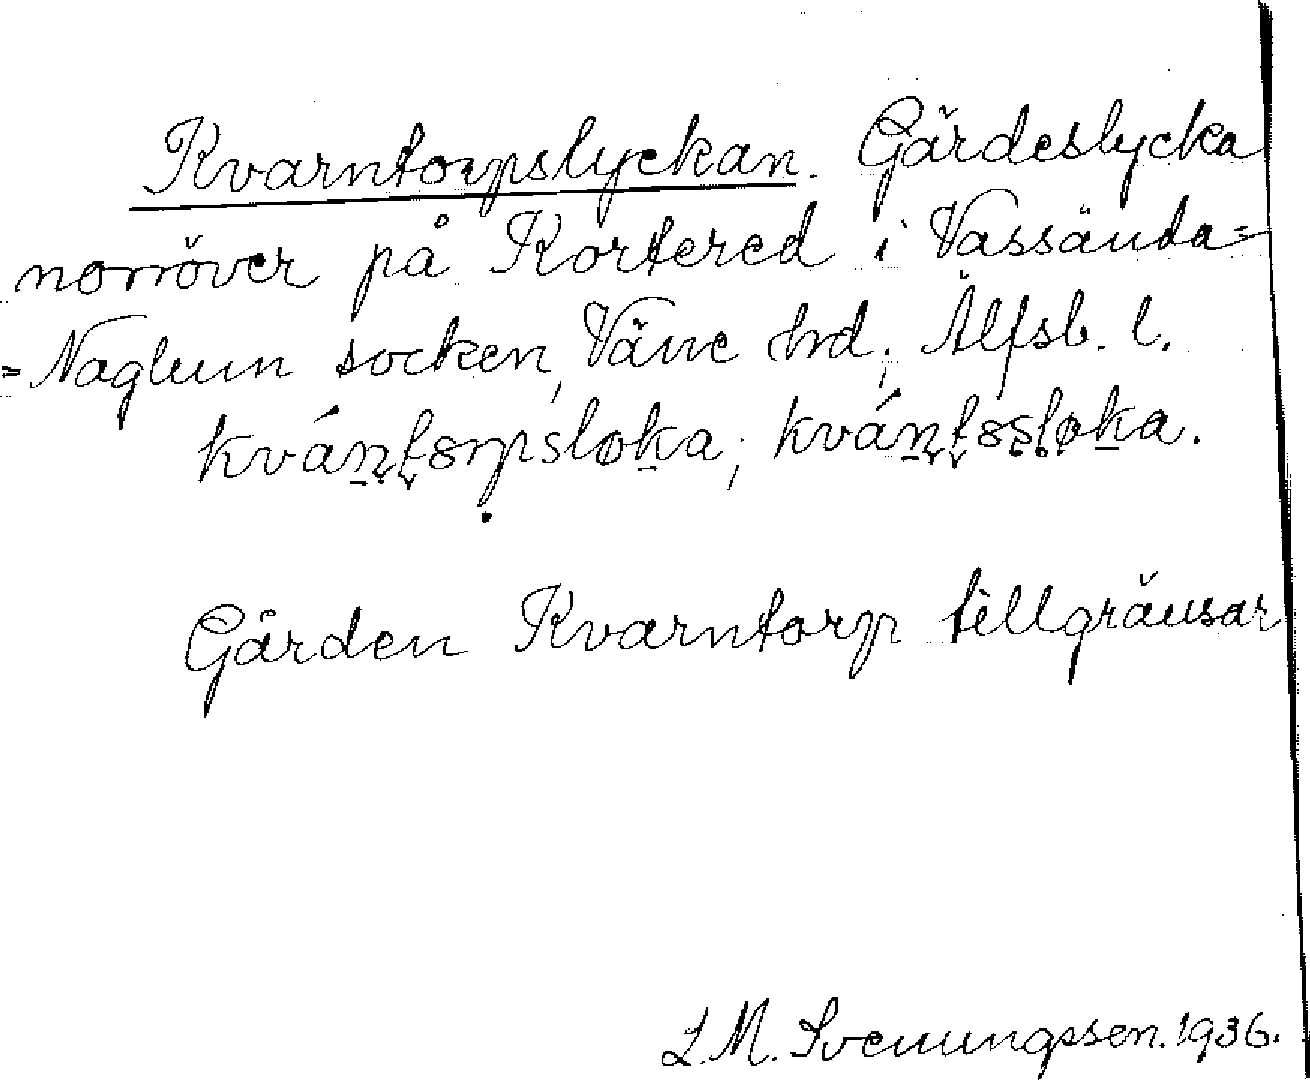 Kvarntorpslyckan. Gärdeslycka
norröver på Kortered i Vassända=
=Naglum socken, Väne hrd, Älfsb. l.
Gården Kvarntorp tillgränsar
L.M. Svenungsson. 1936.